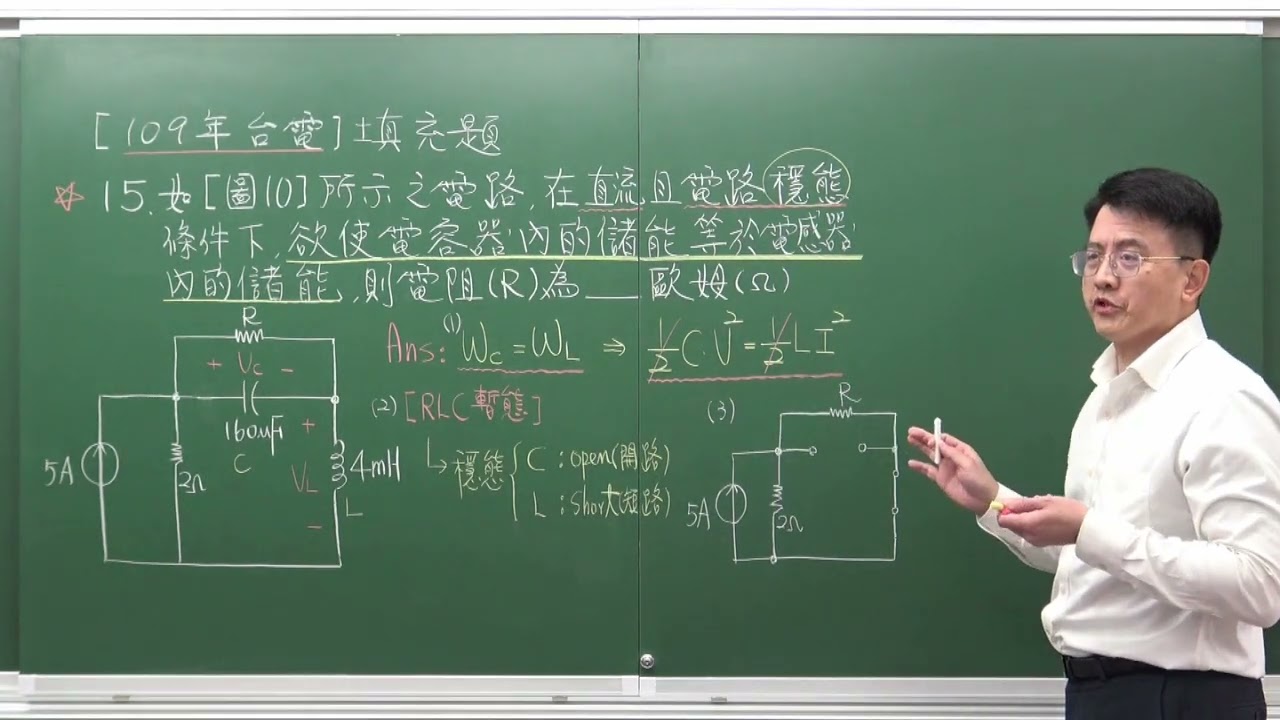 [109年台電]填充題
☆ 15.如[圖10]所示之電路,在直流且電路穩態
條件下,欲使電容器內的儲能等於電感器
內的儲能,則電阻(R)為___歐姆(Ω)
R
+ Vc -
160μF
C
5A
2Ω
+
VL
-
4mH
L
Ans: (1) Wc = WL ⇒ 1/2 C·V² = 1/2 L I²
(2) [RLC暫態]
↳ 穩態 { C : open(開路)
L : short(短路)
(3)
R
5A
2Ω